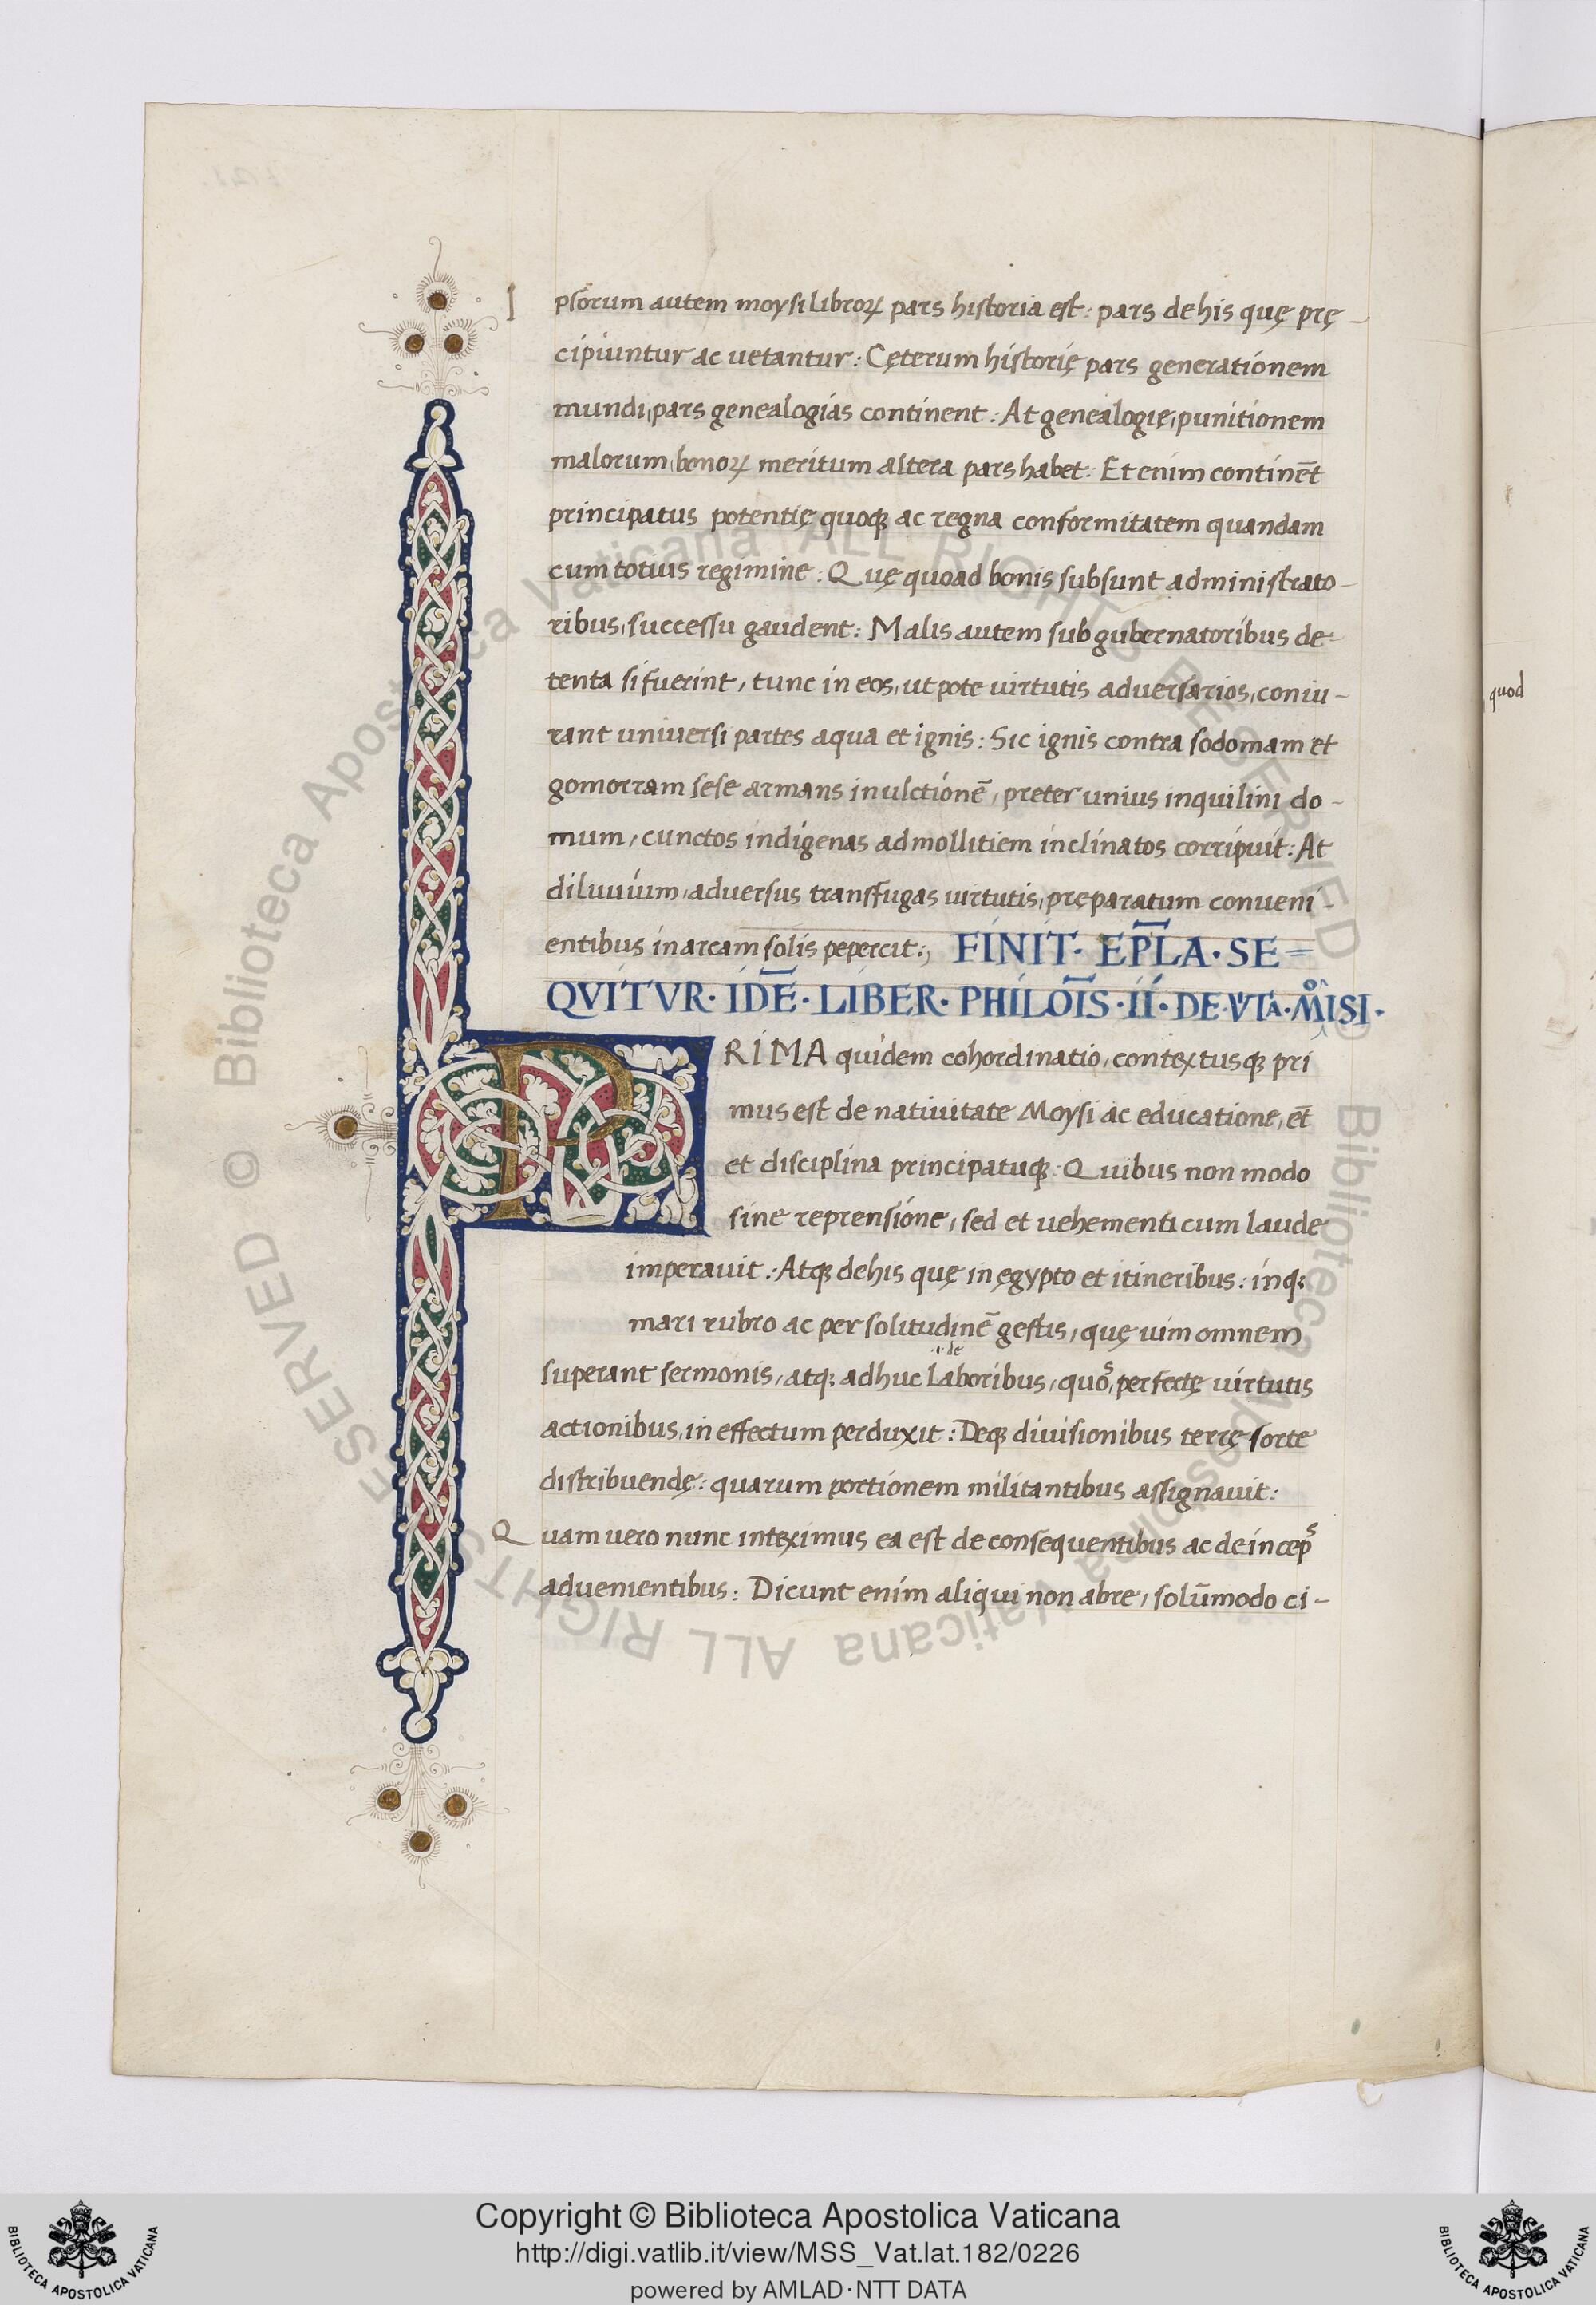 Ipsorum autem moysi libroꝝ pars historia est: pars de his quę prę-
cipiuntur ac uetantur: Cęterum historię pars generationem
mundi, pars genealogias continent: At genealogię, punitionem
malorum, bonoꝝ meritum altera pars habet: Et enim continēt
principatus potentię quoqꝫ ac regna conformitatem quandam
cum totius regimine: Quę quoad bonis subsunt administrato-
ribus, successu gaudent: Malis autem sub gubernatoribus de-
tenta si fuerint, tunc in eos, ut pote uirtutis aduersarios, coniu-
rant uniuersi partes aqua et ignis: Sic ignis contra sodomam et
gomorram sese armans in ulctionē, preter unius inquilini do-
mum, cunctos indigenas ad mollitiem inclinatos corripuit: At
diluuium, aduersus transfugas uirtutis, pręparatum conueni-
entibus in arcam solis pepercit:, FINIT· EPL̄A· SE=
QVITVR· IDĒ· LIBER· PHILOĪS· II· DE· VITA· MOISI·
PRIMA quidem cohordinatio, contextusqꝫ pri
mus est de natiuitate Moysi ac educatione, et̄
et disciplina principatuqꝫ: Quibus non modo
sine reprensione, sed et uehementi cum laude
imperauit: Atqꝫ de his quę in ęgypto et itineribus: inqꝫ
mari rubro ac per solitudinē gestis, quę uim omnem
superant sermonis, atqꝫ adhuc laboribus, quos, perfectę uirtutis
actionibus, in effectum perduxit: Deqꝫ diuisionibus terrę sorte
distribuendę: quarum portionem militantibus assignauit:
Quam uero nunc inteximus ea est de consequentibus ac deinceps
aduenientibus: Dicunt enim aliqui non abre, solūmodo ci-
quod
Biblioteca Apostolica Vaticana ALL RIGHTS RESERVED ©
Copyright © Biblioteca Apostolica Vaticana
http://digi.vatlib.it/view/MSS_Vat.lat.182/0226
powered by AMLAD·NTT DATA
BIBLIOTECA APOSTOLICA VATICANA
BIBLIOTECA APOSTOLICA VATICANA